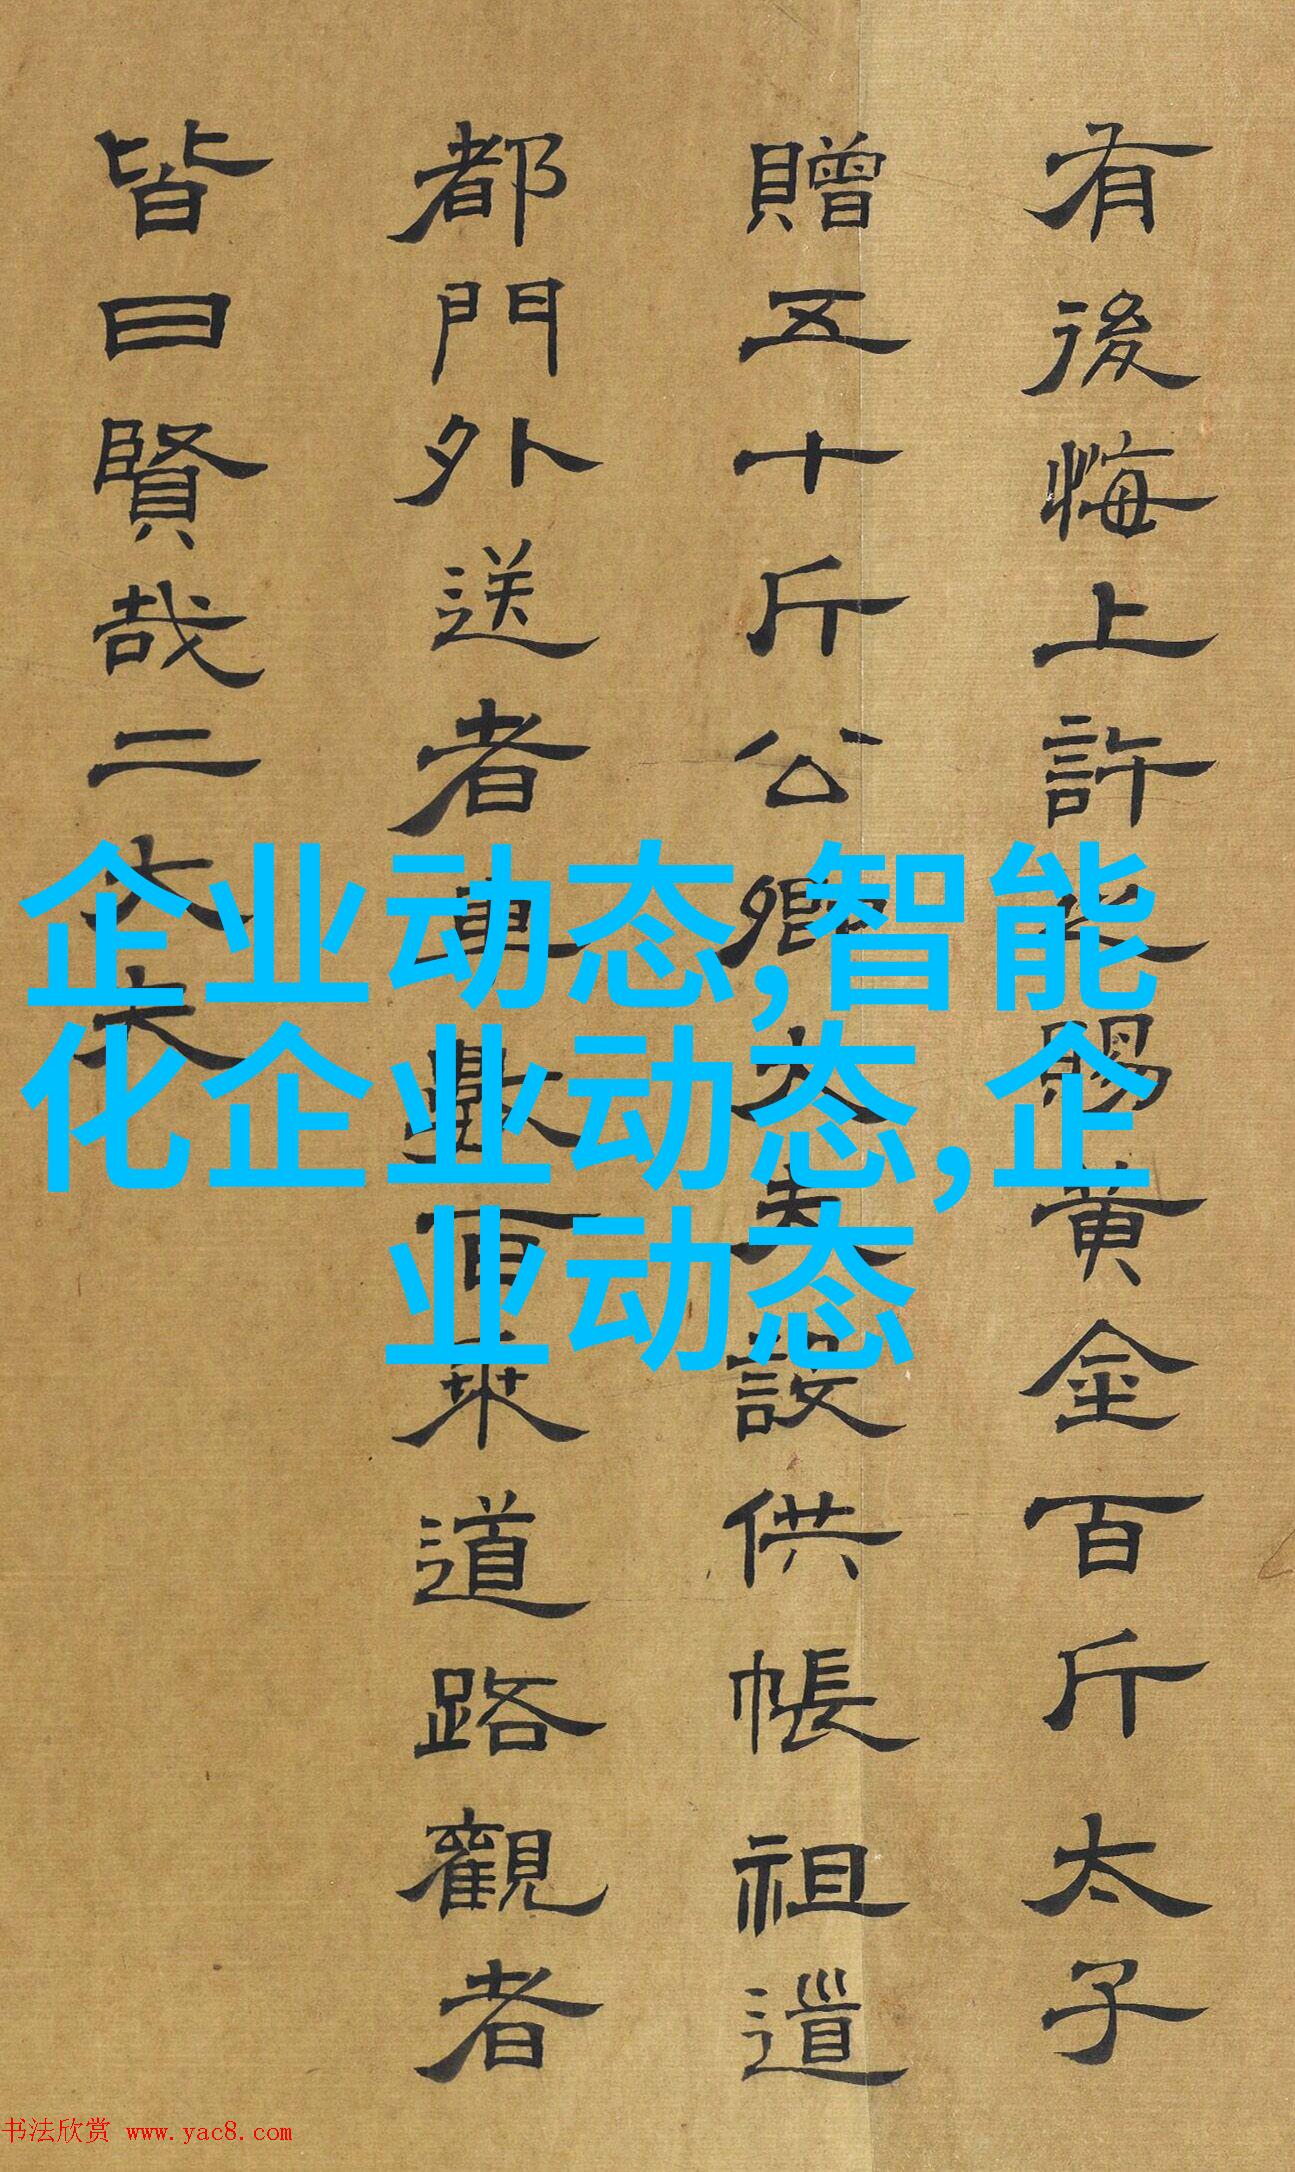 有後悔上許之賜黄金百斤太子
贈五十斤公卿大夫設供帳祖道
都門外送者車數百乘道路觀者
皆曰賢哉二大夫
企业动态,智能
化企业动态,企
业动态
书法欣赏 www.yac8.com